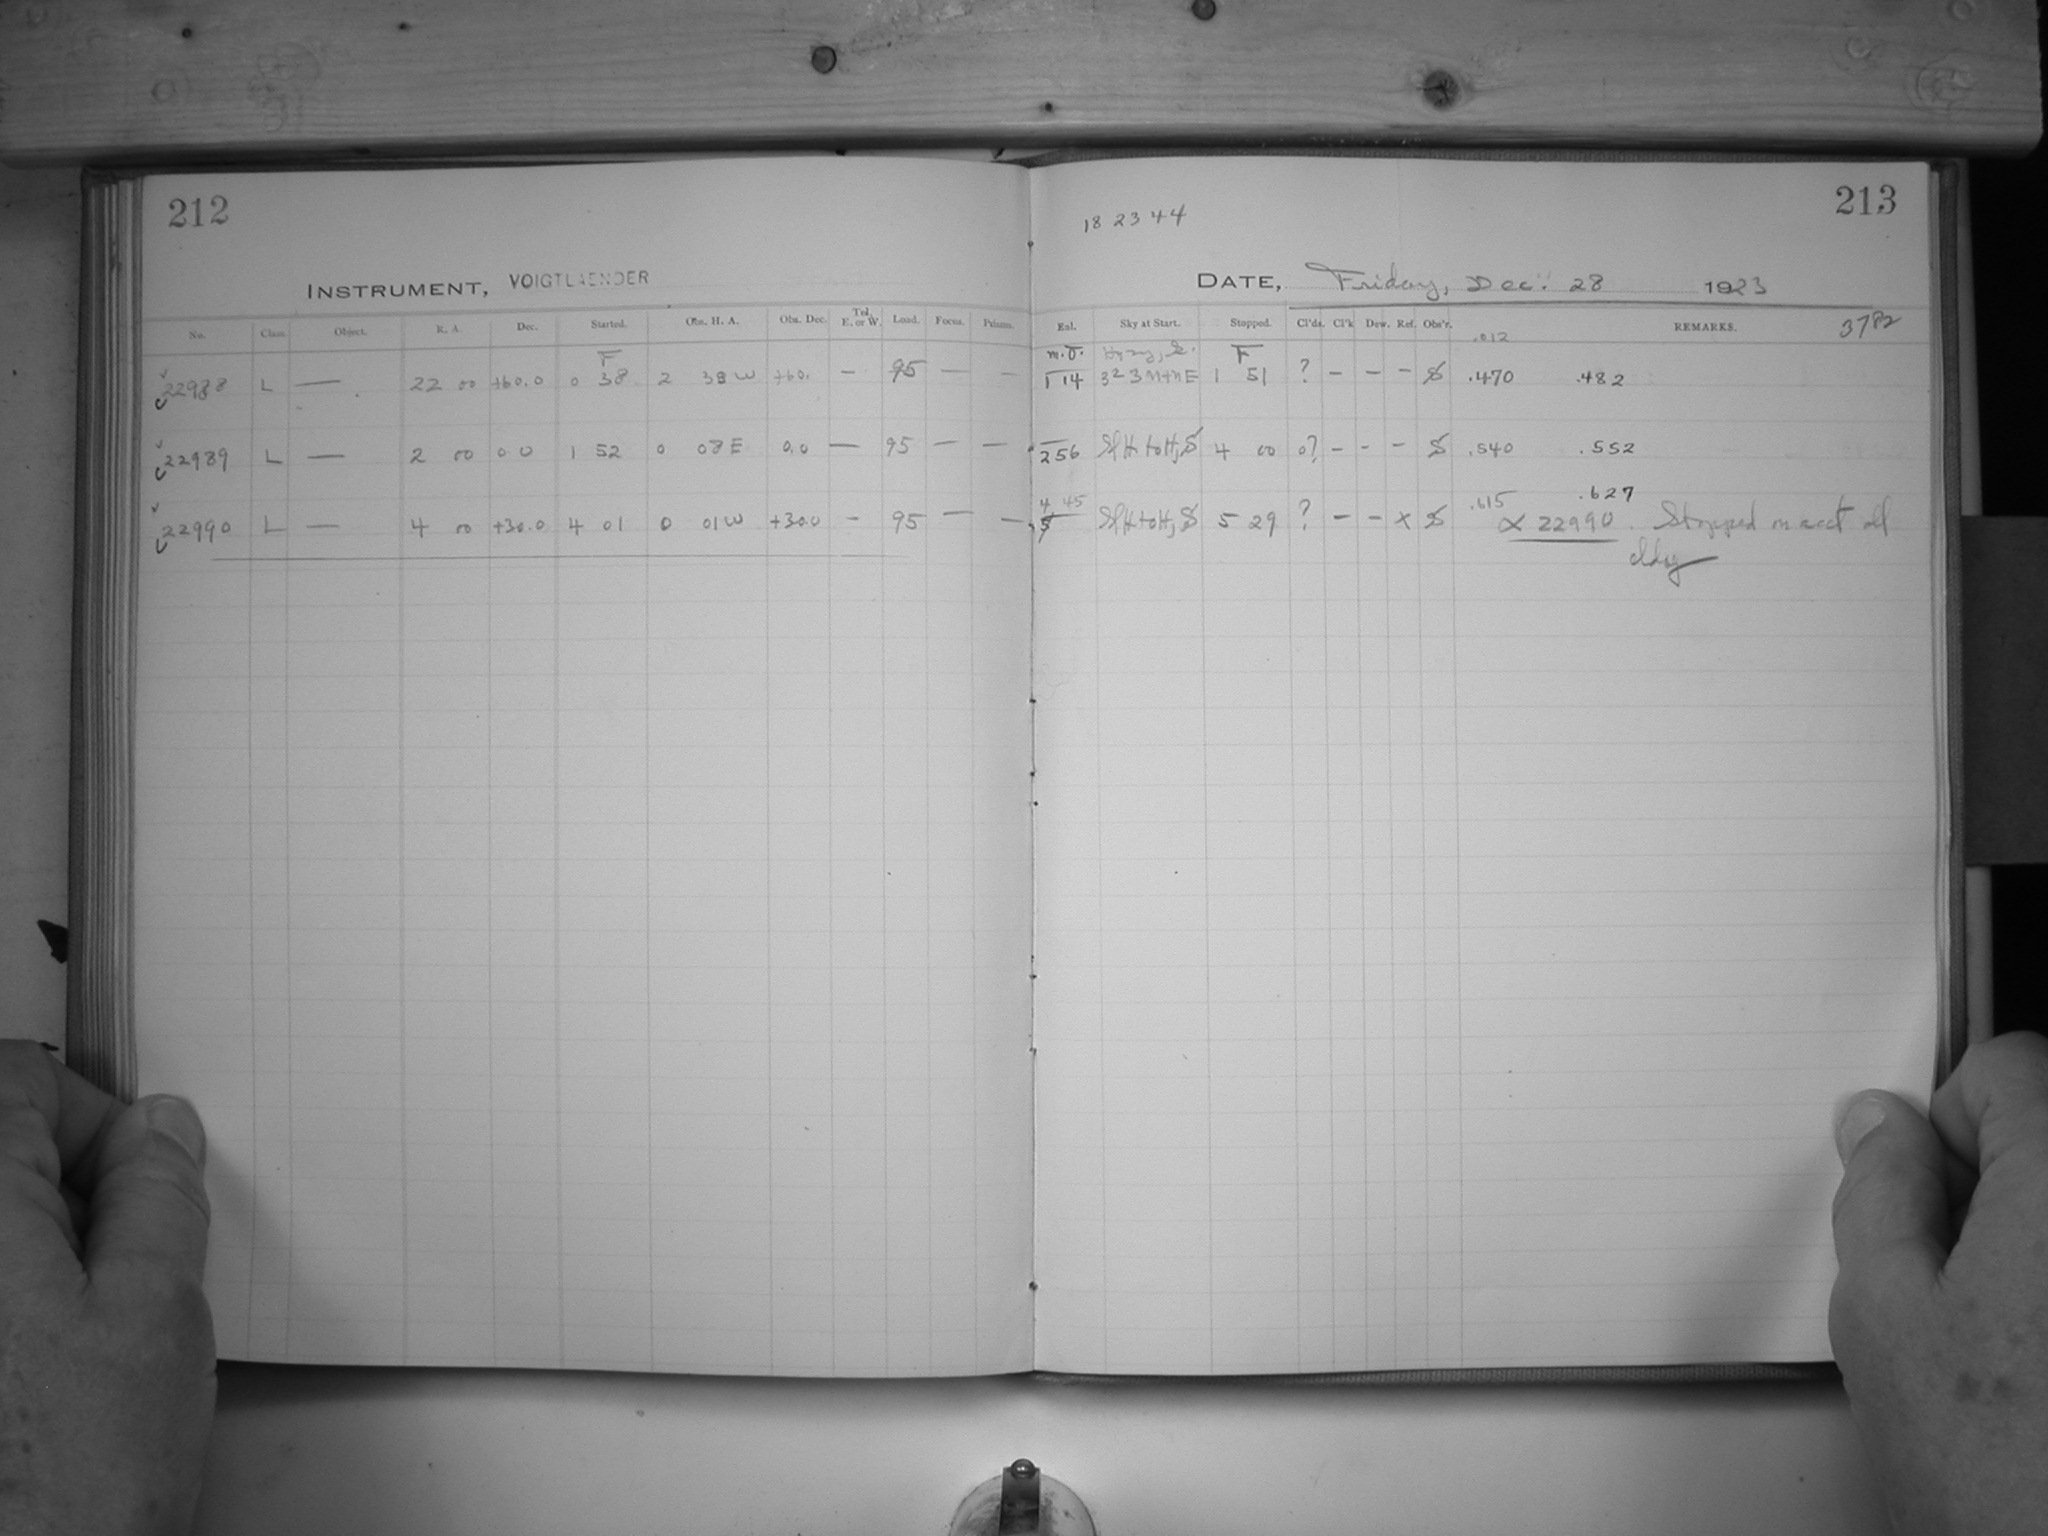 212
INSTRUMENT, VOIGTLAENDER
No. Class. Object. R. A. Dec. Started. Obs. H. A. Obs. Dec. Tel. E. or W. Load. Focus. Prisms.
F
22988 L — 22 00 +60.0 0 38 2 38 W +60. — 95 — —
22989 L — 2 00 0.0 1 52 0 08 E 0.0 — 95 — —
22990 L — 4 00 +30.0 4 01 0 01 W +30.0 — 95 — —
213
18 23 44
DATE, Friday, Dec. 28 1923
Exl. Sky at Start. Stopped. Cl'ds. Cl'k Dew. Ref. Obs'r. REMARKS. 3782
.012
m.J. F
1 14 1 51 ? — — — S .470 .482
2 56 4 00 0? — — — S .540 .552
4 45 .615 .627
5 5 29 ? — — X S X 22990. Stopped on acct of
cldy